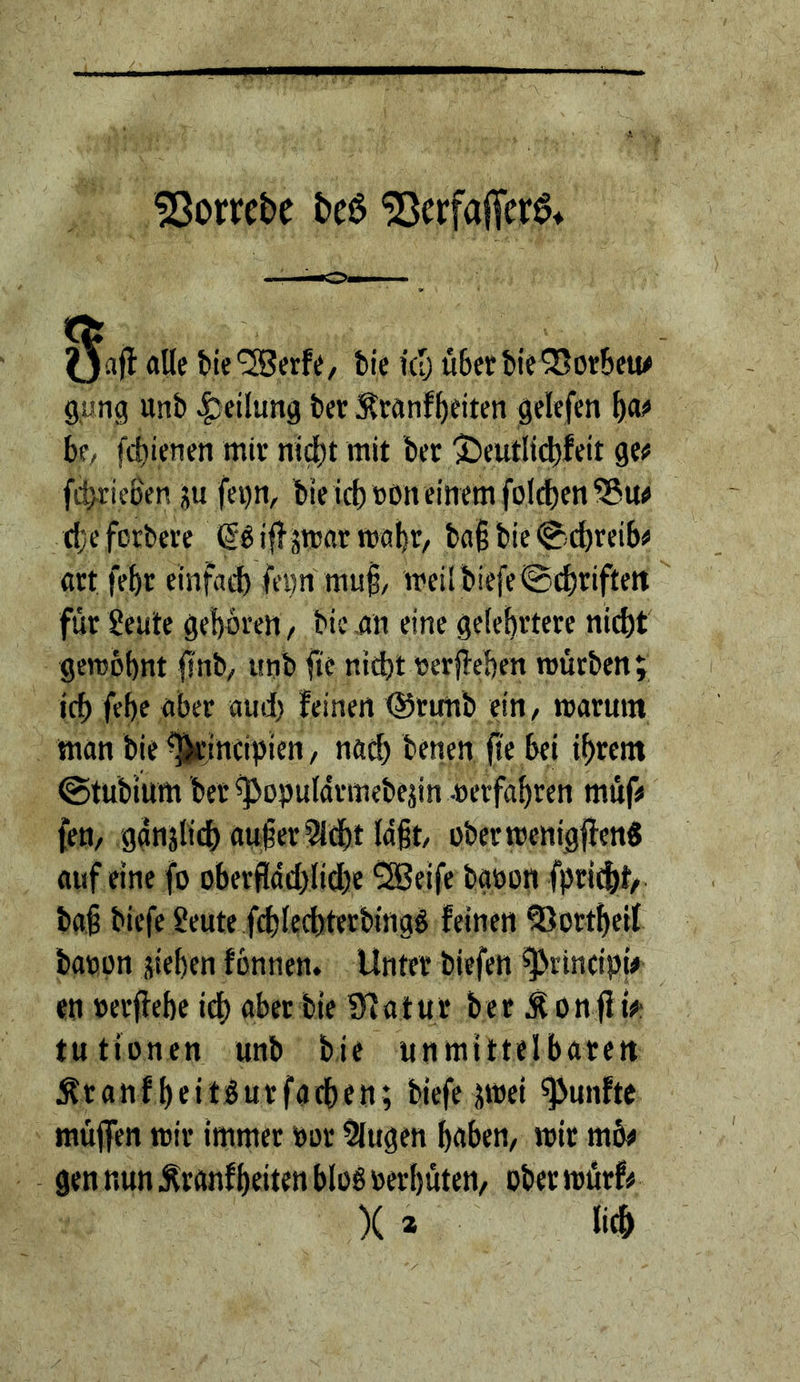 Vorrede des Verfassers.
Fast alle die Werke, die ich über die Vorbeu-
gung und Heilung der Krankheiten gelesen ha-
be, schienen mir nicht mit der Deutlichkeit ge-
schrieben zu seyn, die ich von einem solchen Bu-
che fordere Es ist zwar wahr, daß die Schreib-
art sehr einfach seyn muß, weil diese Schriften
für Leute gehören, die an eine gelehrtere nicht
gewöhnt sind, und sie nicht verstehen würden;
ich sehe aber auch keinen Grund ein, warum
man die Principien, nach denen sie bei ihrem
Studium der Populärmedezin verfahren müs-
sen, gänzlich außer Acht läßt, oder wenigstens
auf eine so oberflächliche Weise davon spricht,
daß diese Leute schlechterdings keinen Vortheil
davon ziehen können. Unter diesen Principi-
en verstehe ich aber die Natur der Konsti-
tutionen und die unmittelbaren
Krankheitsursachen; diese zwei Punkte
müssen wir immer vor Augen haben, wir mö-
gen nun Krankheiten blos verhüten, oder würk-
)( 2 lich